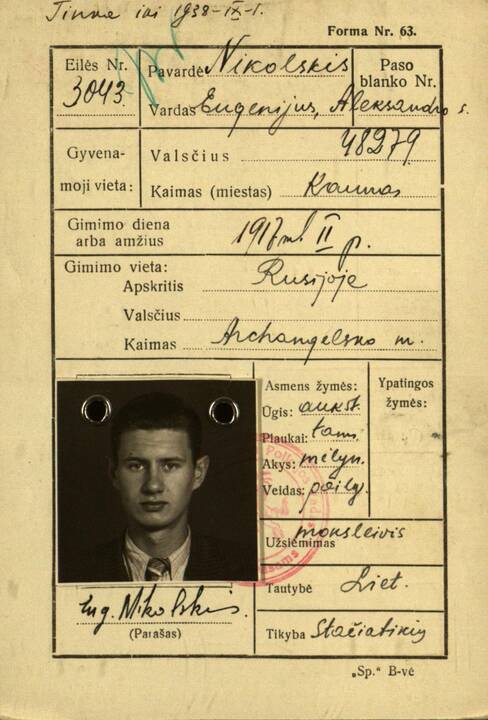 Tinka iki 1938-IX-1.
Forma Nr. 63.
Eilės Nr.
3043.
Pavardė Nikolskis
Vardas Eugenijus, Aleksandro s.
Paso
blanko Nr.
48279
Gyvena-
moji vieta:
Valsčius
Kaimas (miestas) Kaunas
Gimimo diena
arba amžius
1917 mt II p.
Gimimo vieta:
Apskritis Rusijoje
Valsčius
Kaimas Archangelsko m.
Asmens žymės:
Ūgis: aukšt.
Plaukai: tams.
Akys: mėlyn.
Veidas: pailg.
Ypatingos
žymės:
Užsiėmimas moksleivis
Tautybė Liet.
Tikyba Stačiatikių
Eug. Nikolskis.
(Parašas)
„Sp." B-vė